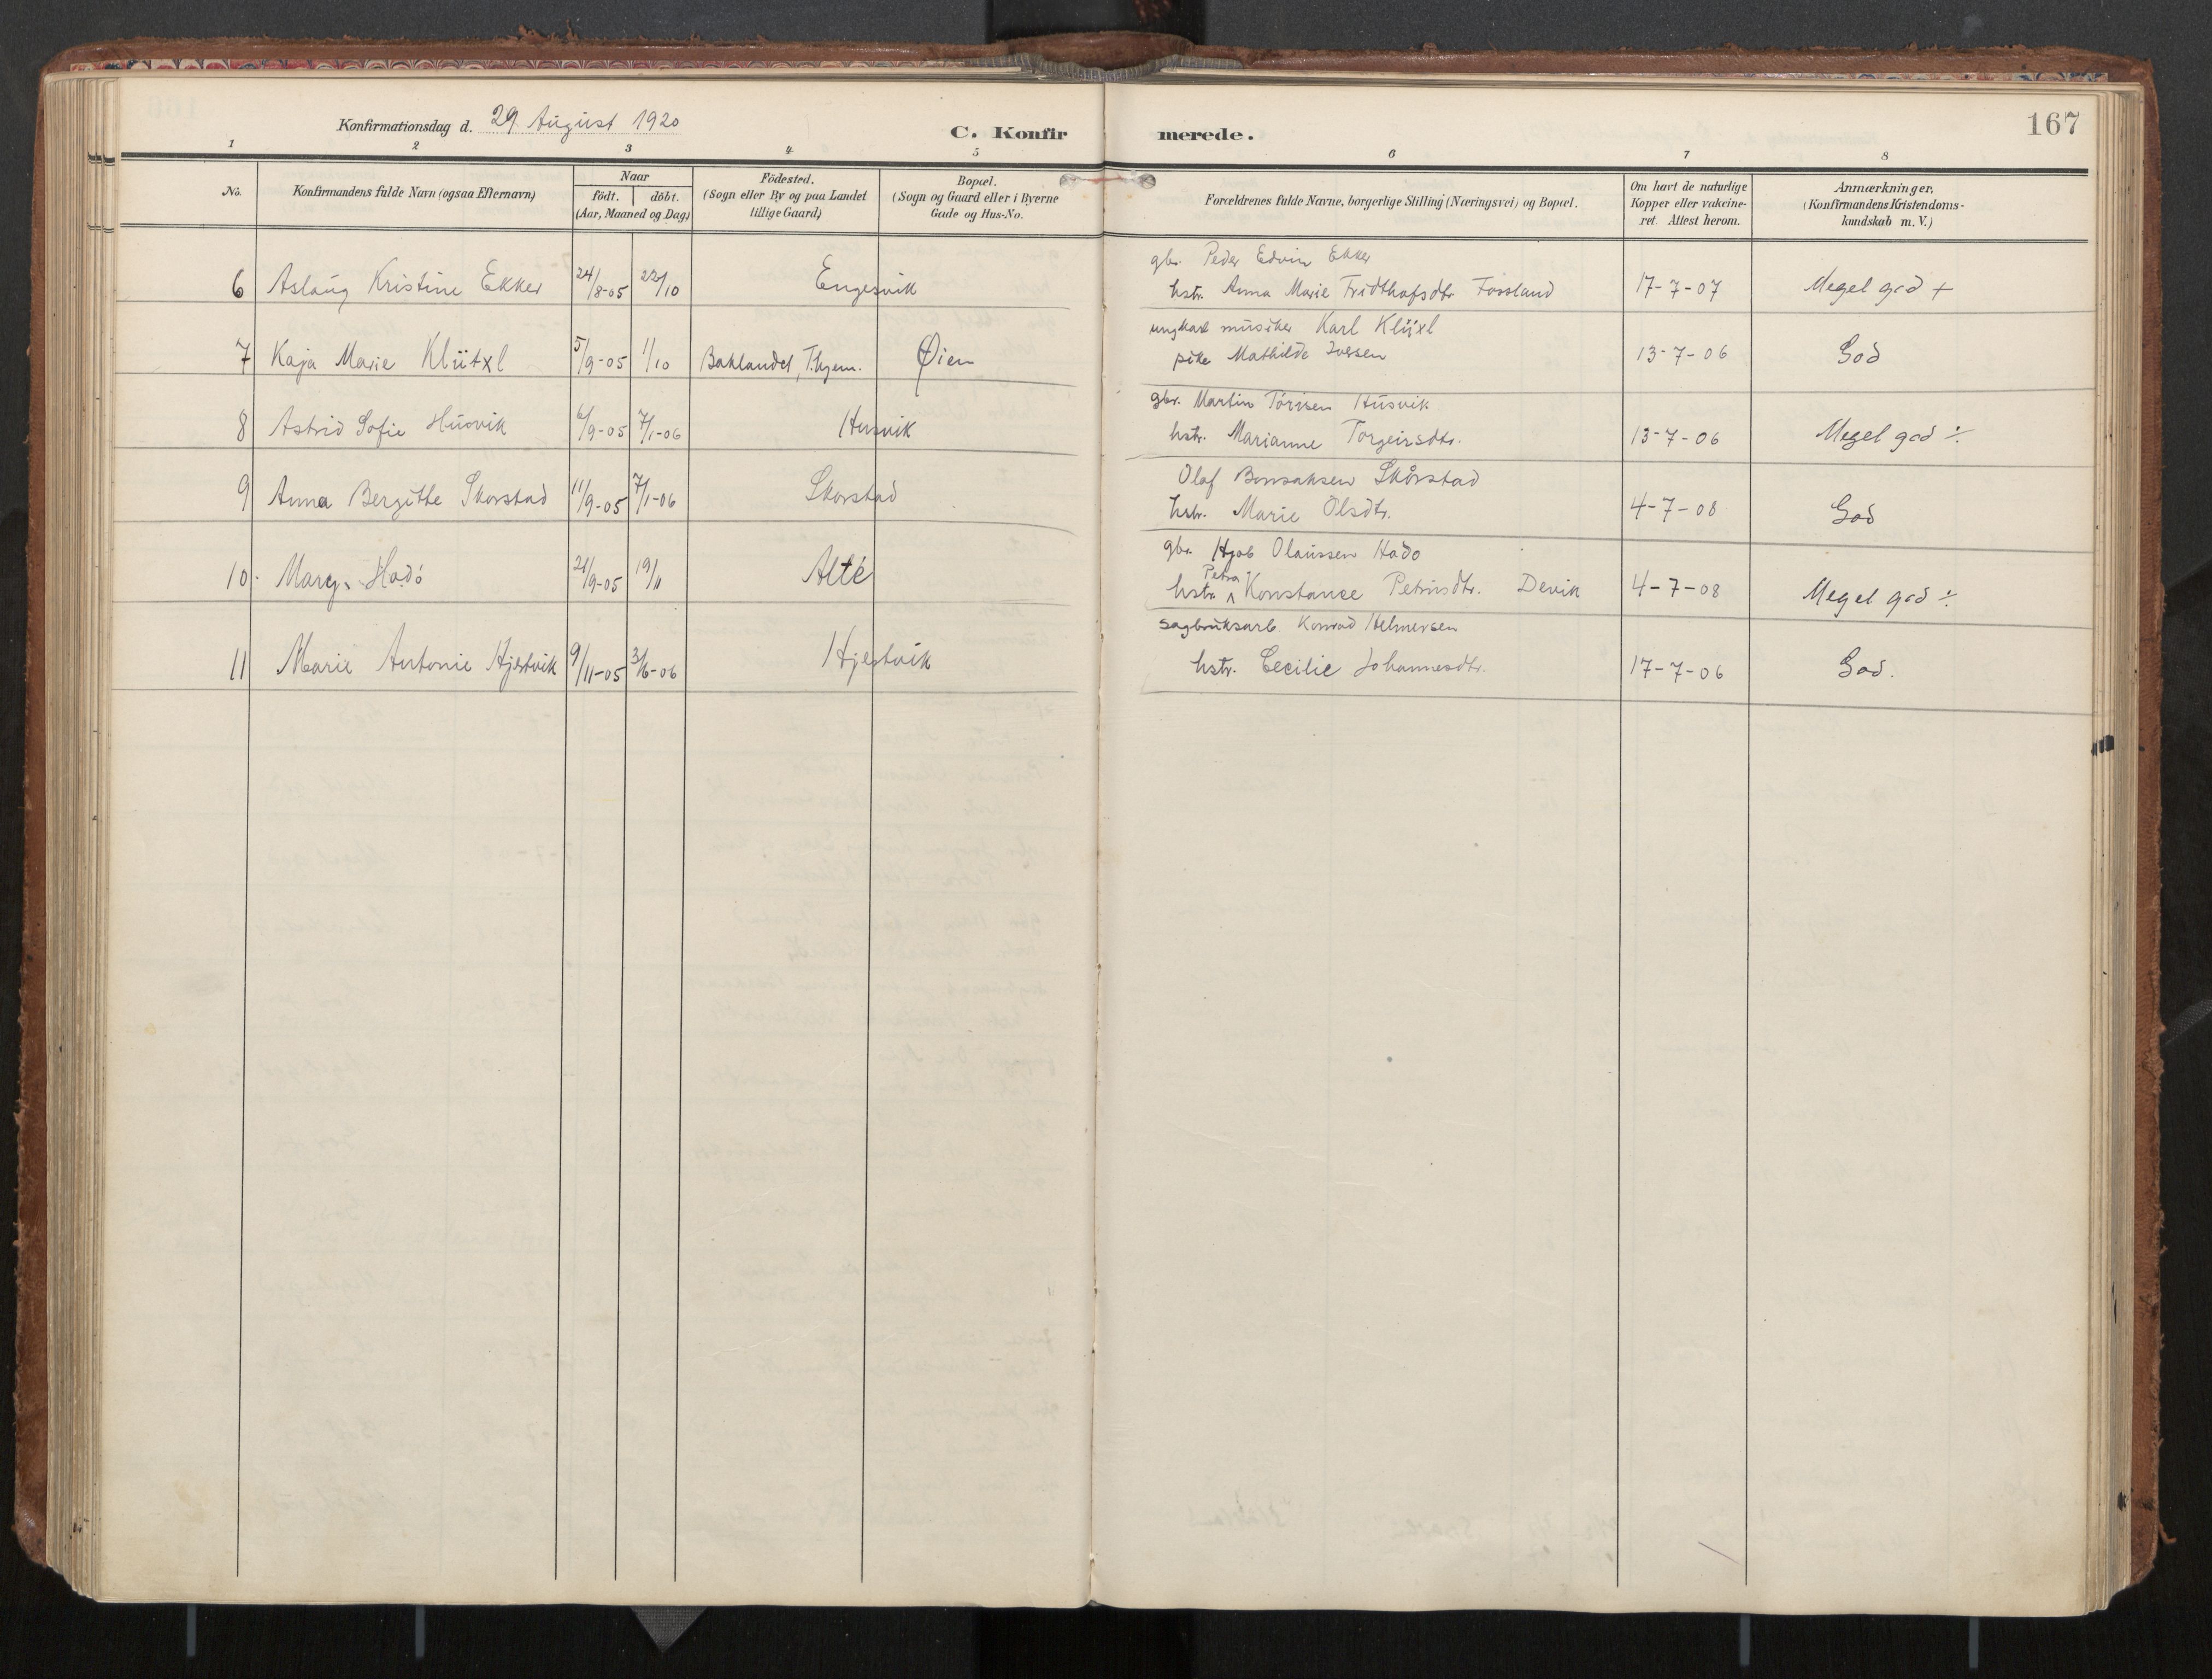 167
Konfirmationsdag d. 29 August 1920
C. Konfirmerede.
1 2 3 4 5 6 7 8
No.
Konfirmandens fulde Navn (ogsaa Efternavn)
Naar
født. døbt.
(Aar, Maaned og Dag)
Födested.
(Sogn eller By og paa Landet
tillige Gaard)
Bopæl.
(Sogn og Gaard eller i Byerne
Gade og Hus-No.
Forældrenes fulde Navne, borgerlige Stilling (Næringsvei) og Bopæl.
Om havt de naturlige
Kopper eller vakcine-
ret. Attest herom.
Anmærkninger,
(Konfirmandens Kristendoms-
kundskab m. V.)
gbr. Peder Edvin Ekker
6 Aslaug Kristine Ekker 24/8-05 22/10 Engesvik hstr. Anna Marie Fridthofsdtr. Fossland 17-7-07 Meget god +
ungkarl musiker Karl Klüxl
7 Kaja Marie Klütxl 5/9-05 1/10 Baklandet, T.hjem. Øien pike Mathilde Iversen 13-7-06 God
gbr. Martin Torisen Husvik
8 Astrid Sofie Husvik 6/9-05 7/1-06 Husvik hstr. Marianne Torgeirsdtr. 13-7-06 Meget god ÷
Olaf Bonsaksen Skårstad
9 Anna Bergitte Skorstad 11/9-05 7/1-06 Skorstad hstr. Marie Olsdtr. 4-7-08 God
gbr. Hjab Olaussen Hadø
Petra
10. Mary Hadø 21/9-05 19/11 Altè hstr. Konstance Petrusdtr. Devik 4-7-08 Meget god ÷
sagbruksarb. Konrad Helmersen
11 Marie Antonie Hjertvik 9/11-05 3/6-06 Hjertvik hstr. Cecilie Johannesdtr. 17-7-06 God.